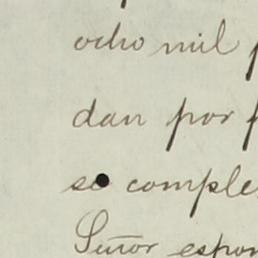 ocho mil
dan por
se comple
Señor espon